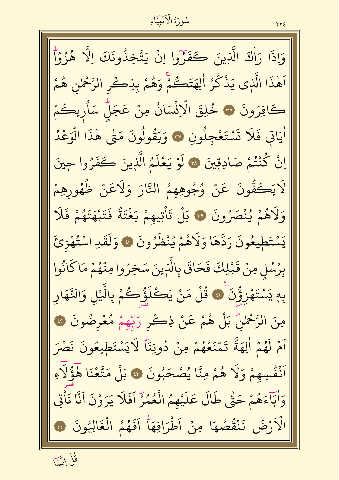 سُورَةُ الْاَنْبِيَاءِ
٣٢٤
وَاِذَا رَاٰكَ الَّذِينَ كَفَرُٓوا اِنْ يَتَّخِذُونَكَ اِلَّا هُزُوًاۜ
اَهٰذَا الَّذِي يَذْكُرُ اٰلِهَتَكُمْۚ وَهُمْ بِذِكْرِ الرَّحْمٰنِ هُمْ
كَافِرُونَ ﴿٣٦﴾ خُلِقَ الْاِنْسَانُ مِنْ عَجَلٍۜ سَاُرِيكُمْ
اٰيَاتِي فَلَا تَسْتَعْجِلُونِ ﴿٣٧﴾ وَيَقُولُونَ مَتٰى هٰذَا الْوَعْدُ
اِنْ كُنْتُمْ صَادِقِينَ ﴿٣٨﴾ لَوْ يَعْلَمُ الَّذِينَ كَفَرُوا حِينَ
لَا يَكُفُّونَ عَنْ وُجُوهِهِمُ النَّارَ وَلَا عَنْ ظُهُورِهِمْ
وَلَا هُمْ يُنْصَرُونَ ﴿٣٩﴾ بَلْ تَأْتِيهِمْ بَغْتَةً فَتَبْهَتُهُمْ فَلَا
يَسْتَطِيعُونَ رَدَّهَا وَلَا هُمْ يُنْظَرُونَ ﴿٤٠﴾ وَلَقَدِ اسْتُهْزِئَ
بِرُسُلٍ مِنْ قَبْلِكَ فَحَاقَ بِالَّذِينَ سَخِرُوا مِنْهُمْ مَا كَانُوا
بِهِ يَسْتَهْزِؤُنَ ﴿٤١﴾ قُلْ مَنْ يَكْلَؤُكُمْ بِالَّيْلِ وَالنَّهَارِ
مِنَ الرَّحْمٰنِۜ بَلْ هُمْ عَنْ ذِكْرِ رَبِّهِمْ مُعْرِضُونَ ﴿٤٢﴾
اَمْ لَهُمْ اٰلِهَةٌ تَمْنَعُهُمْ مِنْ دُونِنَاۜ لَا يَسْتَطِيعُونَ نَصْرَ
اَنْفُسِهِمْ وَلَا هُمْ مِنَّا يُصْحَبُونَ ﴿٤٣﴾ بَلْ مَتَّعْنَا هٰٓؤُلَٓاءِ
وَاٰبَٓاءَهُمْ حَتّٰى طَالَ عَلَيْهِمُ الْعُمُرُۜ اَفَلَا يَرَوْنَ اَنَّا نَأْتِي
الْاَرْضَ نَنْقُصُهَا مِنْ اَطْرَافِهَاۜ اَفَهُمُ الْغَالِبُونَ ﴿٤٤﴾
قُلْ اِنَّمَٓا